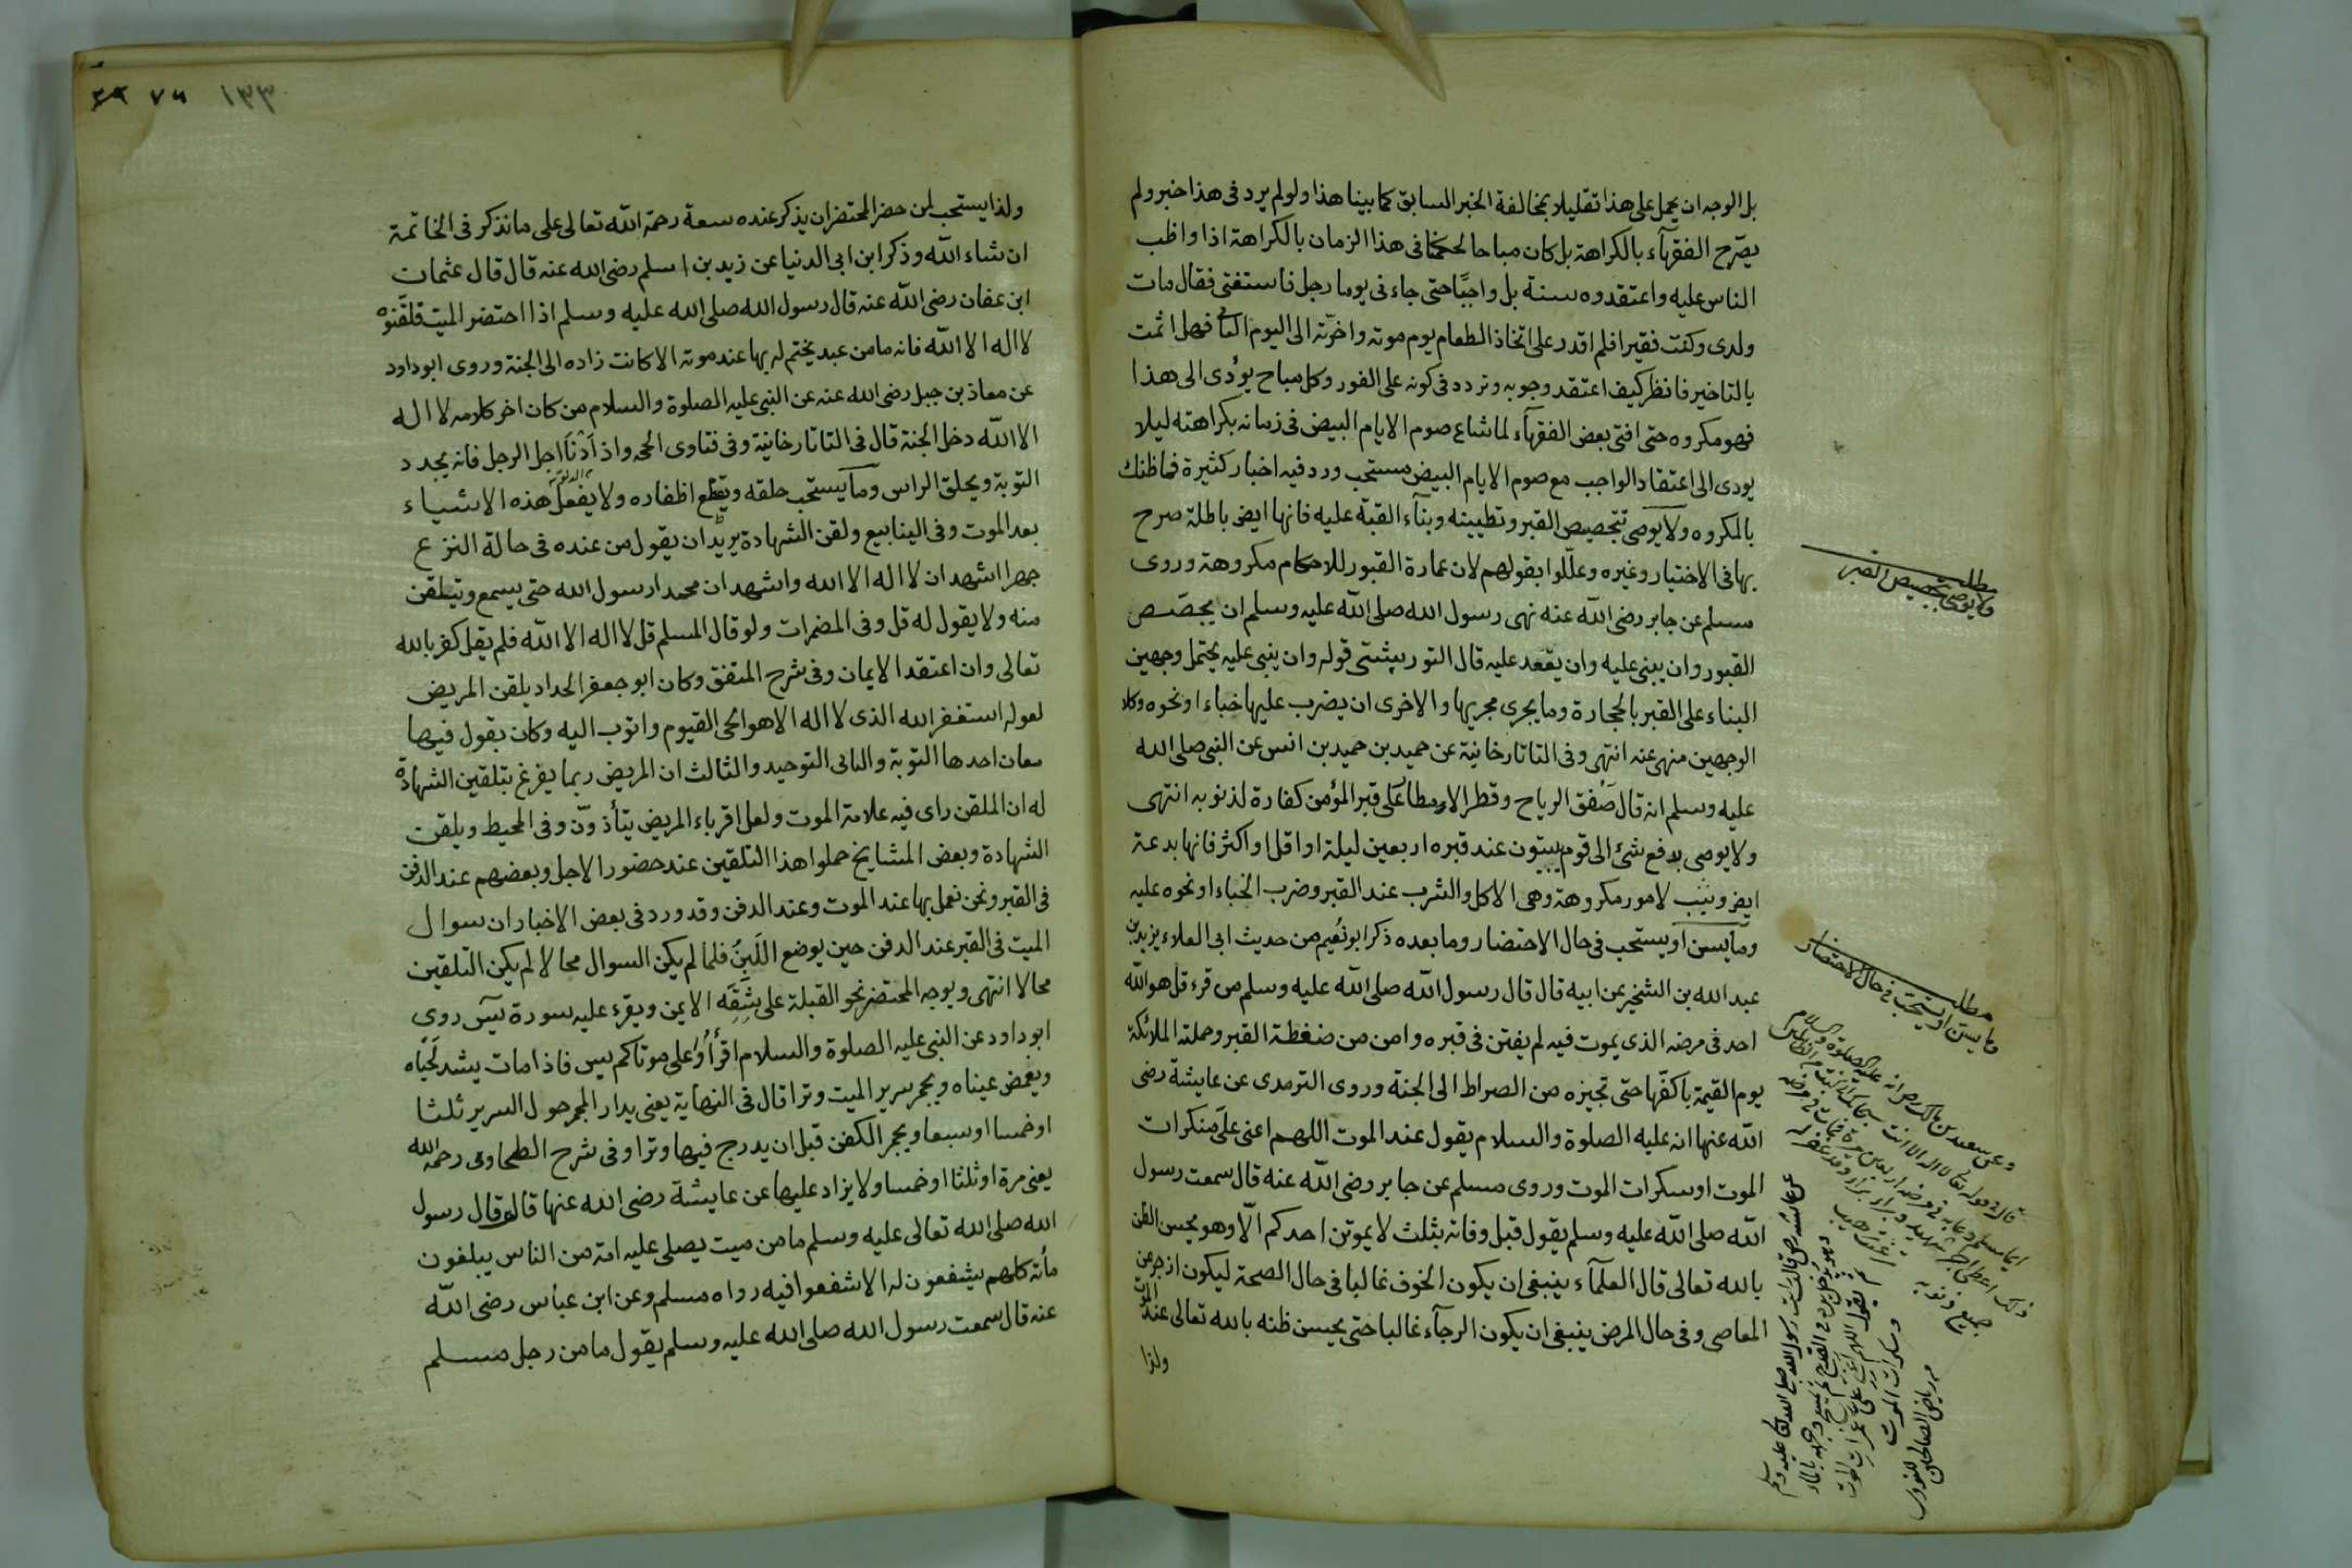 بل الوجه ان يحمل على هذا تقليلا بمخالفة الخبر السابق كما بينا هذا ولو لم يرد فى هذا خبر ولم
يصّرح الفقهآء بالكراهة بل كان مباحا لحكمنا فى هذا الزمان بالكراهة اذا واظب
الناس عليه واعتقدوه سنة بل واجبًا حتى جاءنى يوما رجل فاستفتى فقال مات
ولدى وكنت فقيرا فلم اقدر على اتخاذ الطعام يوم موته واخرّته الى اليوم فهل اثمت
بالتاخير فانظر كيف اعتقد وجوبه وتردد فى كونه على الفور وكل مباح يؤدى الى هذا
فهو مكروه حتى افتى بعض الفقهآء لما شاع صوم الايام البيض فى زمانه بكراهته ليلا
يودى الى اعتقاد الواجب مع صوم الايام البيض مستحب ورد فيه اخبار كثيرة فما ظنك
بالمكروه ولا يوصى بتجصيص القبر وتطيينه وبنآء القبة عليه فانها ايضا باطلة صرح
بها فى الاختيار وغيره وعلّلوا بقولهم لان عمارة القبور للاحكام مكروهة وروى
مسلم عن جابر رضى الله عنه نهى رسول الله صلى الله عليه وسلم ان يجصّص
القبور وان يبنى عليه وان يقعد عليه قال التوربپشتى قوله وان يبنى عليه يحتمل وجهين
البناء على القبر بالحجارة وما يجرى مجريها والاخرى ان يضرب عليها خباء او نحوه وكلا
الوجهين منهى عنه انتهى وفى التاتارخانية عن حميد بن حميد بن انس عن النبى صلى الله
عليه وسلم انه قال صَفق الرياح وقطر الامطار على قبر المؤمن كفارة لذنوبه انتهى
ولا يوصى بدفع شئ الى قوم يبيتون عند قبره اربعين ليلة او اقل او اكثر فانها بدعة
ايض وسبب لامور مكروهة وهى الاكل والشرب عند القبر وضرب الخباء او نحوه عليه
وما يسن او يستحب فى حال الاحتضار وما بعده ذكر ابو نُعَيم من حديث ابى العلاء يزيد بن
عبد الله بن الشخير عن ابيه قال قال رسول الله صلى الله عليه وسلم من قرء قل هو الله
احد فى مرضه الذى يموت فيه لم يفتن فى قبره وامن من ضغطة القبر وحملته الملائكة
يوم القيمة باكفّها حتى تجيزه من الصراط الى الجنة وروى الترمدى عن عايشة رضى
الله عنها انه عليه الصلوة والسلام يقول عند الموت اللهم اعنى على منكرات
الموت او سكرات الموت وروى مسلم عن جابر رضى الله عنه قال سمعت رسول
الله صلى الله عليه وسلم يقول قبل وفاته بثلث لا يموتن احدكم الّا وهو يحسن الظن
بالله تعالى قال العلمآء ينبغى ان يكون الخوف غالبا فى حال الصحة ليكون ازجر عن
المعاصى وفى حال المرض ينبغى ان يكون الرجآء غالبا حتى يحسن ظنه بالله تعالى عند الموت
ولذا
مطلب
ولا يوصى بتجصيص القبر
مطلب
وما يسن او يستحب فى حال الاحتضار
وعن سعد بن مالك رض انه عليه الصلوة والسلام
قال فى قوله تعالى لا اله الا انت سبحانك انى كنت من الظالمين
ايما مسلم دعا به فى مرضه اربعين مرة فمات فى مرضه
ذلك اعطى اجر شهيد وان برأ برأ وقد غفر له
جميع ذنوبه
عن عايشة رض قالت رايت رسول الله صلى الله تعالى عليه وسلم
وهو يدخل يده فى القدح ثم يمسح وجهه بالماء
ثم يقول اللهم اعنى على غمرات الموت
وسكرات الموت
من رياض الصالحين للنووى
١٣٣ ٧٦
ولذا يستحب لمن حضر المحتضر ان يذكر عنده سعة رحمة الله تعالى على ما نذكر فى الخاتمة
ان شاء الله وذكر ابن ابى الدنيا عن زيد بن اسلم رضى الله عنه قال قال عثمان
ابن عفان رضى الله عنه قال رسول الله صلى الله عليه وسلم اذا احتضر الميت فلقنوه
لا اله الا الله فانه ما من عبد يختم له بها عند موته الا كانت زاده الى الجنة وروى ابو داود
عن معاذ بن جبل رضى الله عنه عن النبى عليه الصلوة والسلام من كان اخر كلامه لا اله
الا الله دخل الجنة قال فى التاتارخانية وفى فتاوى الحجه واذا دنا اجل الرجل فانه يجدد
التوبة ويحلق الراس وما يستحب حلقه ويقطع اظفاره ولا يفعل هذه الاشياء
بعد الموت وفى الينابيع ولقن الشهادة يريد ان يقول من عنده فى حالة النزع
جهرا اشهد ان لا اله الا الله واشهد ان محمدا رسول الله حتى يسمع ويتلقن
منه ولا يقول له قل وفى المضمرات ولو قال المسلم قل لا اله الا الله فلم يقل كفر بالله
تعالى وان اعتقد الايمان وفى شرح المتفق وكان ابو جعفر الحداد يلقن المريض
لقوله استغفر الله الذى لا اله الا هو الحى القيوم واتوب اليه وكان يقول فيها
معان احدها التوبة والثانى التوحيد والثالث ان المريض ربما يفزع بتلقين الشهادة
له ان الملقن راى فيه علامة الموت ولعل اقرباء المريض يتأذوّن وفى المحيط ويلقن
الشهادة وبعض المشايخ حملوا هذا التلقين عند حضور الاجل وبعضهم عند الدفن
فى القبر ونحن نعمل بها عند الموت وعند الدفن وقد ورد فى بعض الاخبار ان سوال
الميت فى القبر عند الدفن حين يوضع اللَبِنُ فلما لم يكن السوال محالا لم يكن التلقين
محالا انتهى ويوجه المحتضر نحو القبلة على شقّه الايمن ويقرء عليه سورة يس روى
ابو داود عن النبى عليه الصلوة والسلام اقرأوا على موتاكم يس فاذا مات يشد لَحياه
ويغمض عيناه ويجمر سرير الميت وترا قال فى النهاية يعنى يدار المجمر حول السرير ثلثا
او خمسا او سبعا ويجمر الكفن قبل ان يدرج فيها وترا وفى شرح الطحاوى رحمه الله
يعنى مرة او ثلثا او خمسا ولا يزاد عليها عن عايشة رضى الله عنها قالت قال رسول
الله صلى الله تعالى عليه وسلم ما من ميت يصلى عليه امة من الناس يبلغون
مأته كلهم يشفعون له الا شفعوا فيه رواه مسلم وعن ابن عباس رضى الله
عنه قال سمعت رسول الله صلى الله عليه وسلم يقول ما من رجل مسلم